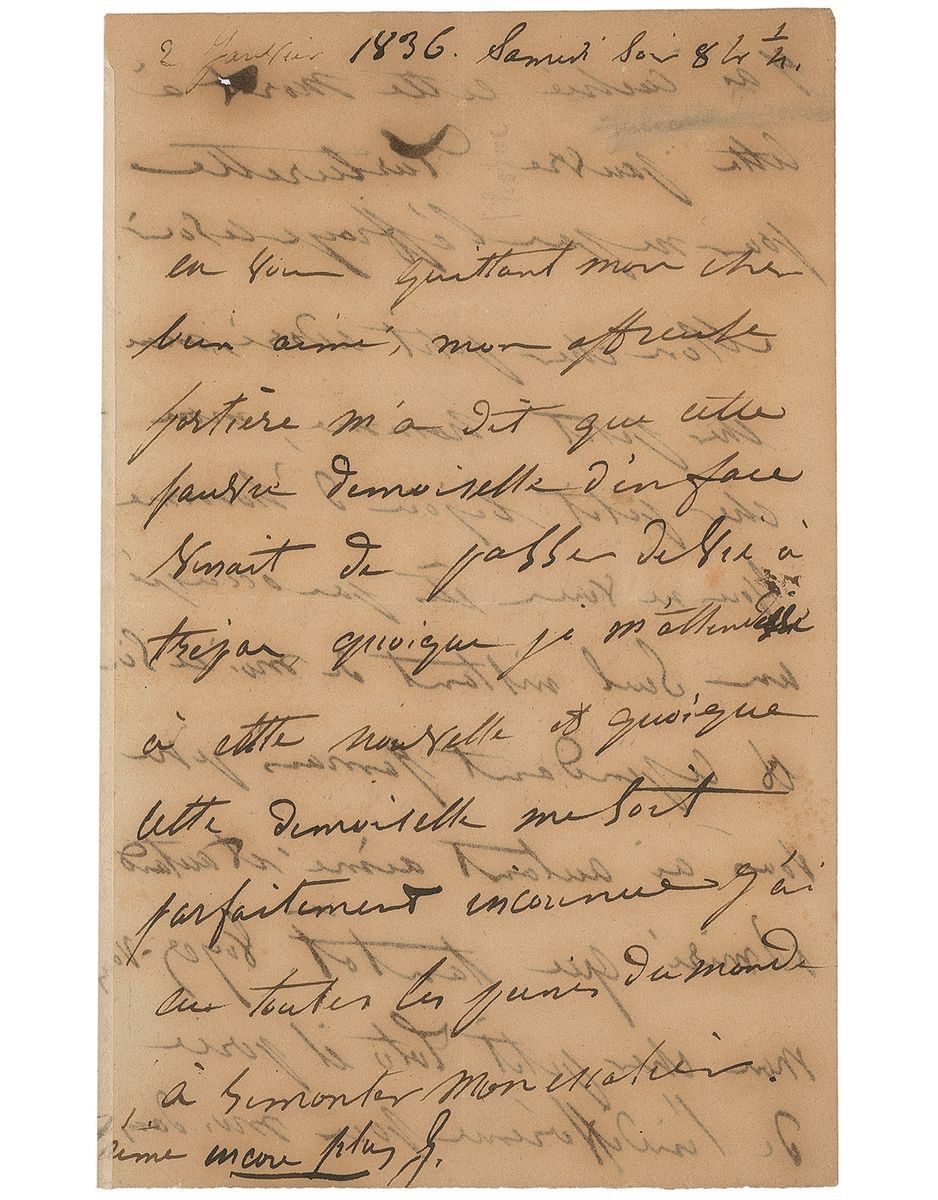 2 Janvier 1836. Samedi Soir 8 h ¼.
en vous quittant mon cher
bien aimé, mon affreuse
portière m'a dit que cette
pauvre demoiselle d'en face
venait de passer de vie à
trépas quoique je m'attendisse
à cette nouvelle et quoique
cette demoiselle me soit
parfaitement inconnue j'ai
eu toutes les peines du monde
à remonter mon escalier.
encore plus J.